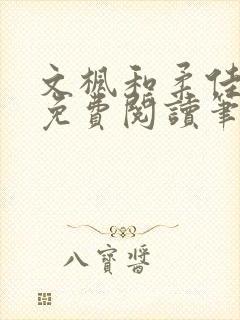 文楓和柔佳
免費閱讀筆
八寶醬